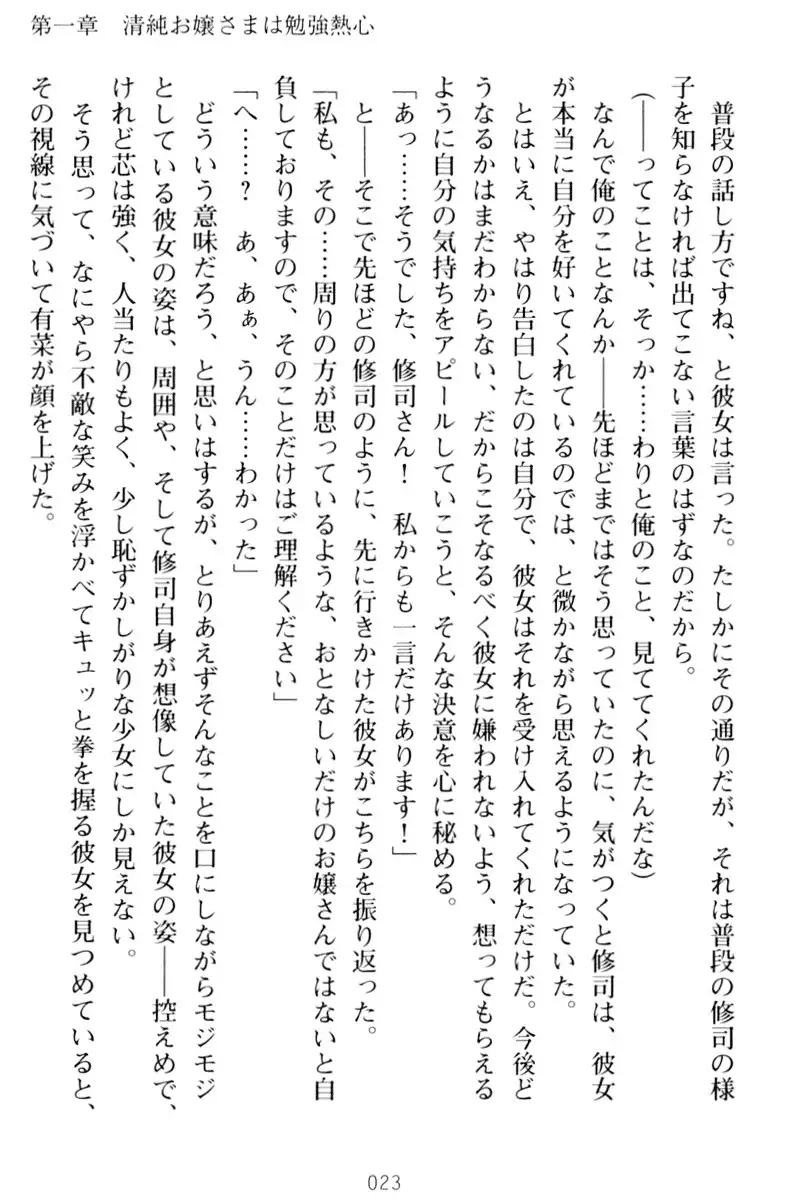 第一章　清純お嬢さまは勉強熱心
　普段の話し方ですね、と彼女は言った。たしかにその通りだが、それは普段の修司の様
子を知らなければ出てこない言葉のはずなのだから。
（――ってことは、そっか……わりと俺のこと、見ててくれたんだな）
　なんで俺のことなんか――先ほどまではそう思っていたのに、気がつくと修司は、彼女
が本当に自分を好いてくれているのでは、と微かながら思えるようになっていた。
　とはいえ、やはり告白したのは自分で、彼女はそれを受け入れてくれただけだ。今後ど
うなるかはまだわからない、だからこそなるべく彼女に嫌われないよう、想ってもらえる
ように自分の気持ちをアピールしていこうと、そんな決意を心に秘める。
「あっ……そうでした、修司さん！　私からも一言だけあります！」
　と――そこで先ほどの修司のように、先に行きかけた彼女がこちらを振り返った。
「私も、その……周りの方が思っているような、おとなしいだけのお嬢さんではないと自
負しておりますので、そのことだけはご理解ください」
「へ……？　あ、あぁ、うん……わかった」
　どういう意味だろう、と思いはするが、とりあえずそんなことを口にしながらモジモジ
としている彼女の姿は、周囲や、そして修司自身が想像していた彼女の姿――控えめで、
けれど芯は強く、人当たりもよく、少し恥ずかしがりな少女にしか見えない。
　そう思って、なにやら不敵な笑みを浮かべてキュッと拳を握る彼女を見つめていると、
その視線に気づいて有菜が顔を上げた。
023